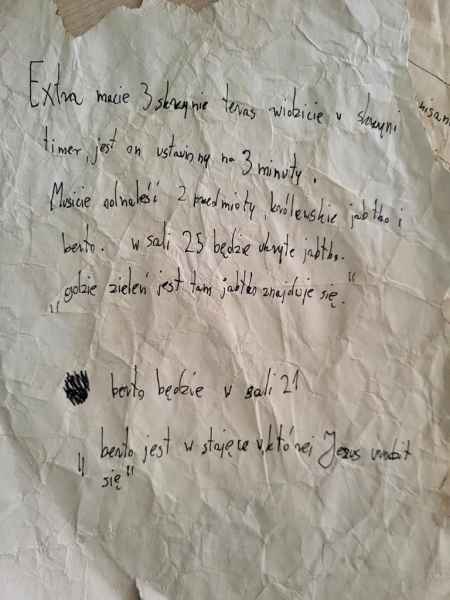 Extra macie 3 skrzynie teraz widzicie w skrzyni
timer, jest on ustawiony na 3 minuty.
Musicie odnaleść 2 przedmioty, królewskie jabłko i
berło. w sali 25 będzie ukryte jabłko.
"gdzie zieleń jest tam jabłko znajduje się."
berło będzie w sali 21
" berło jest w stajęce w której Jezus urodził
się"